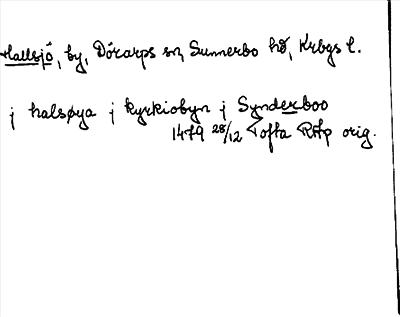 Hallsjö, by, Dörarps sn, Sunnerbo hd, Krbgs l.
j halsøya j kyrkiobyn j Synderboo
1479 28/12 Tofta RAp orig.